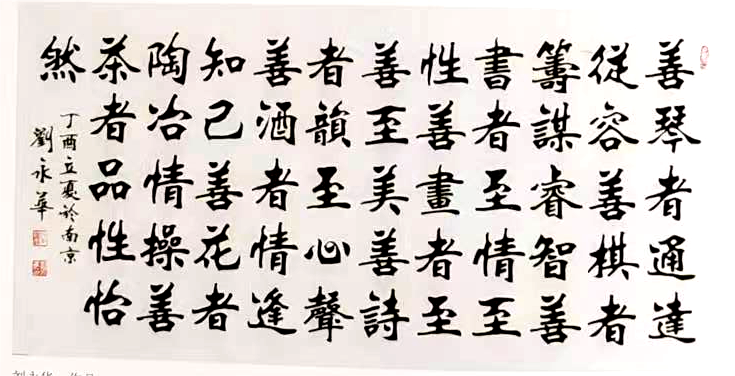 善琴者通達
從容善棋者
籌謀睿智善
書者至情至
性善畫者至
善至美善詩
者韻至心聲
善酒者情逢
知己善花者
陶冶情操善
茶者品性怡
然
丁酉立夏於南京
劉永華